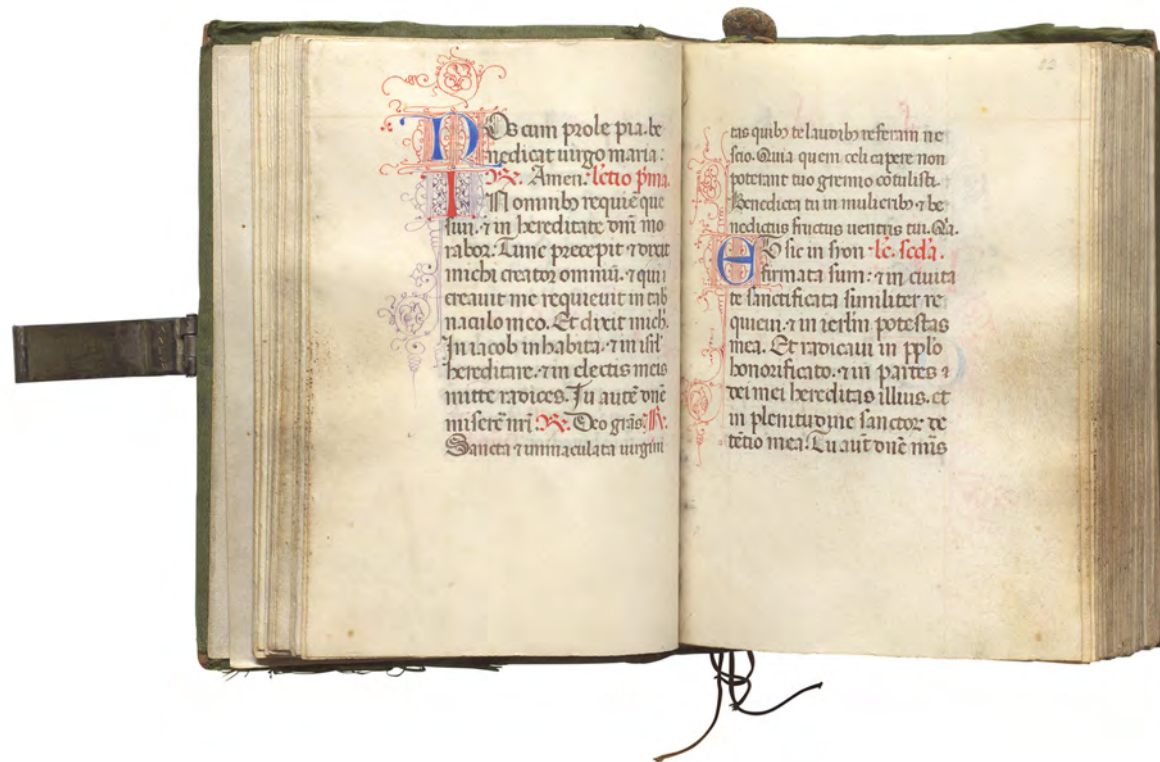 NOs cum prole pia be
nedicat uirgo maria:
℟. Amen. lectio p̄ma.
IN omnib⁊ requie̅ que
siui. ⁊ in hereditate dn̄i mo
rabor. Tunc precepit ⁊ dixit
michi creator omniū. ⁊ qui
creauit me requieuit in tab̄
naculo meo. Et dixit mich.
In iacob inhabita. ⁊ in isr̄l
hereditare. ⁊ in electis meis
mitte radices. Tu autē dn̄e
miserē nr̄i. ℟. Deo grās. ℟.
Sancta ⁊ inmaculata uirgini
tas quib⁊ te laudib⁊ referam ne
scio. Quia quem celi capere non
poterant tuo gremio cōtulisti.
Benedicta tu in mulierib⁊ ⁊ be
nedictus fructus uentris tui. Q̄a.
ET sic in syon lc̄. scd̄a.
firmata sum: ⁊ in ciuita
te sanctificata similiter re
quieui. ⁊ in ierl̄m potestas
mea. Et radicaui in pplō
honorificato. ⁊ in partes
dei mei hereditas illius. et
in plenitudine sanctor⁊ de
tētio mea. Tu aūt dn̄e mīs